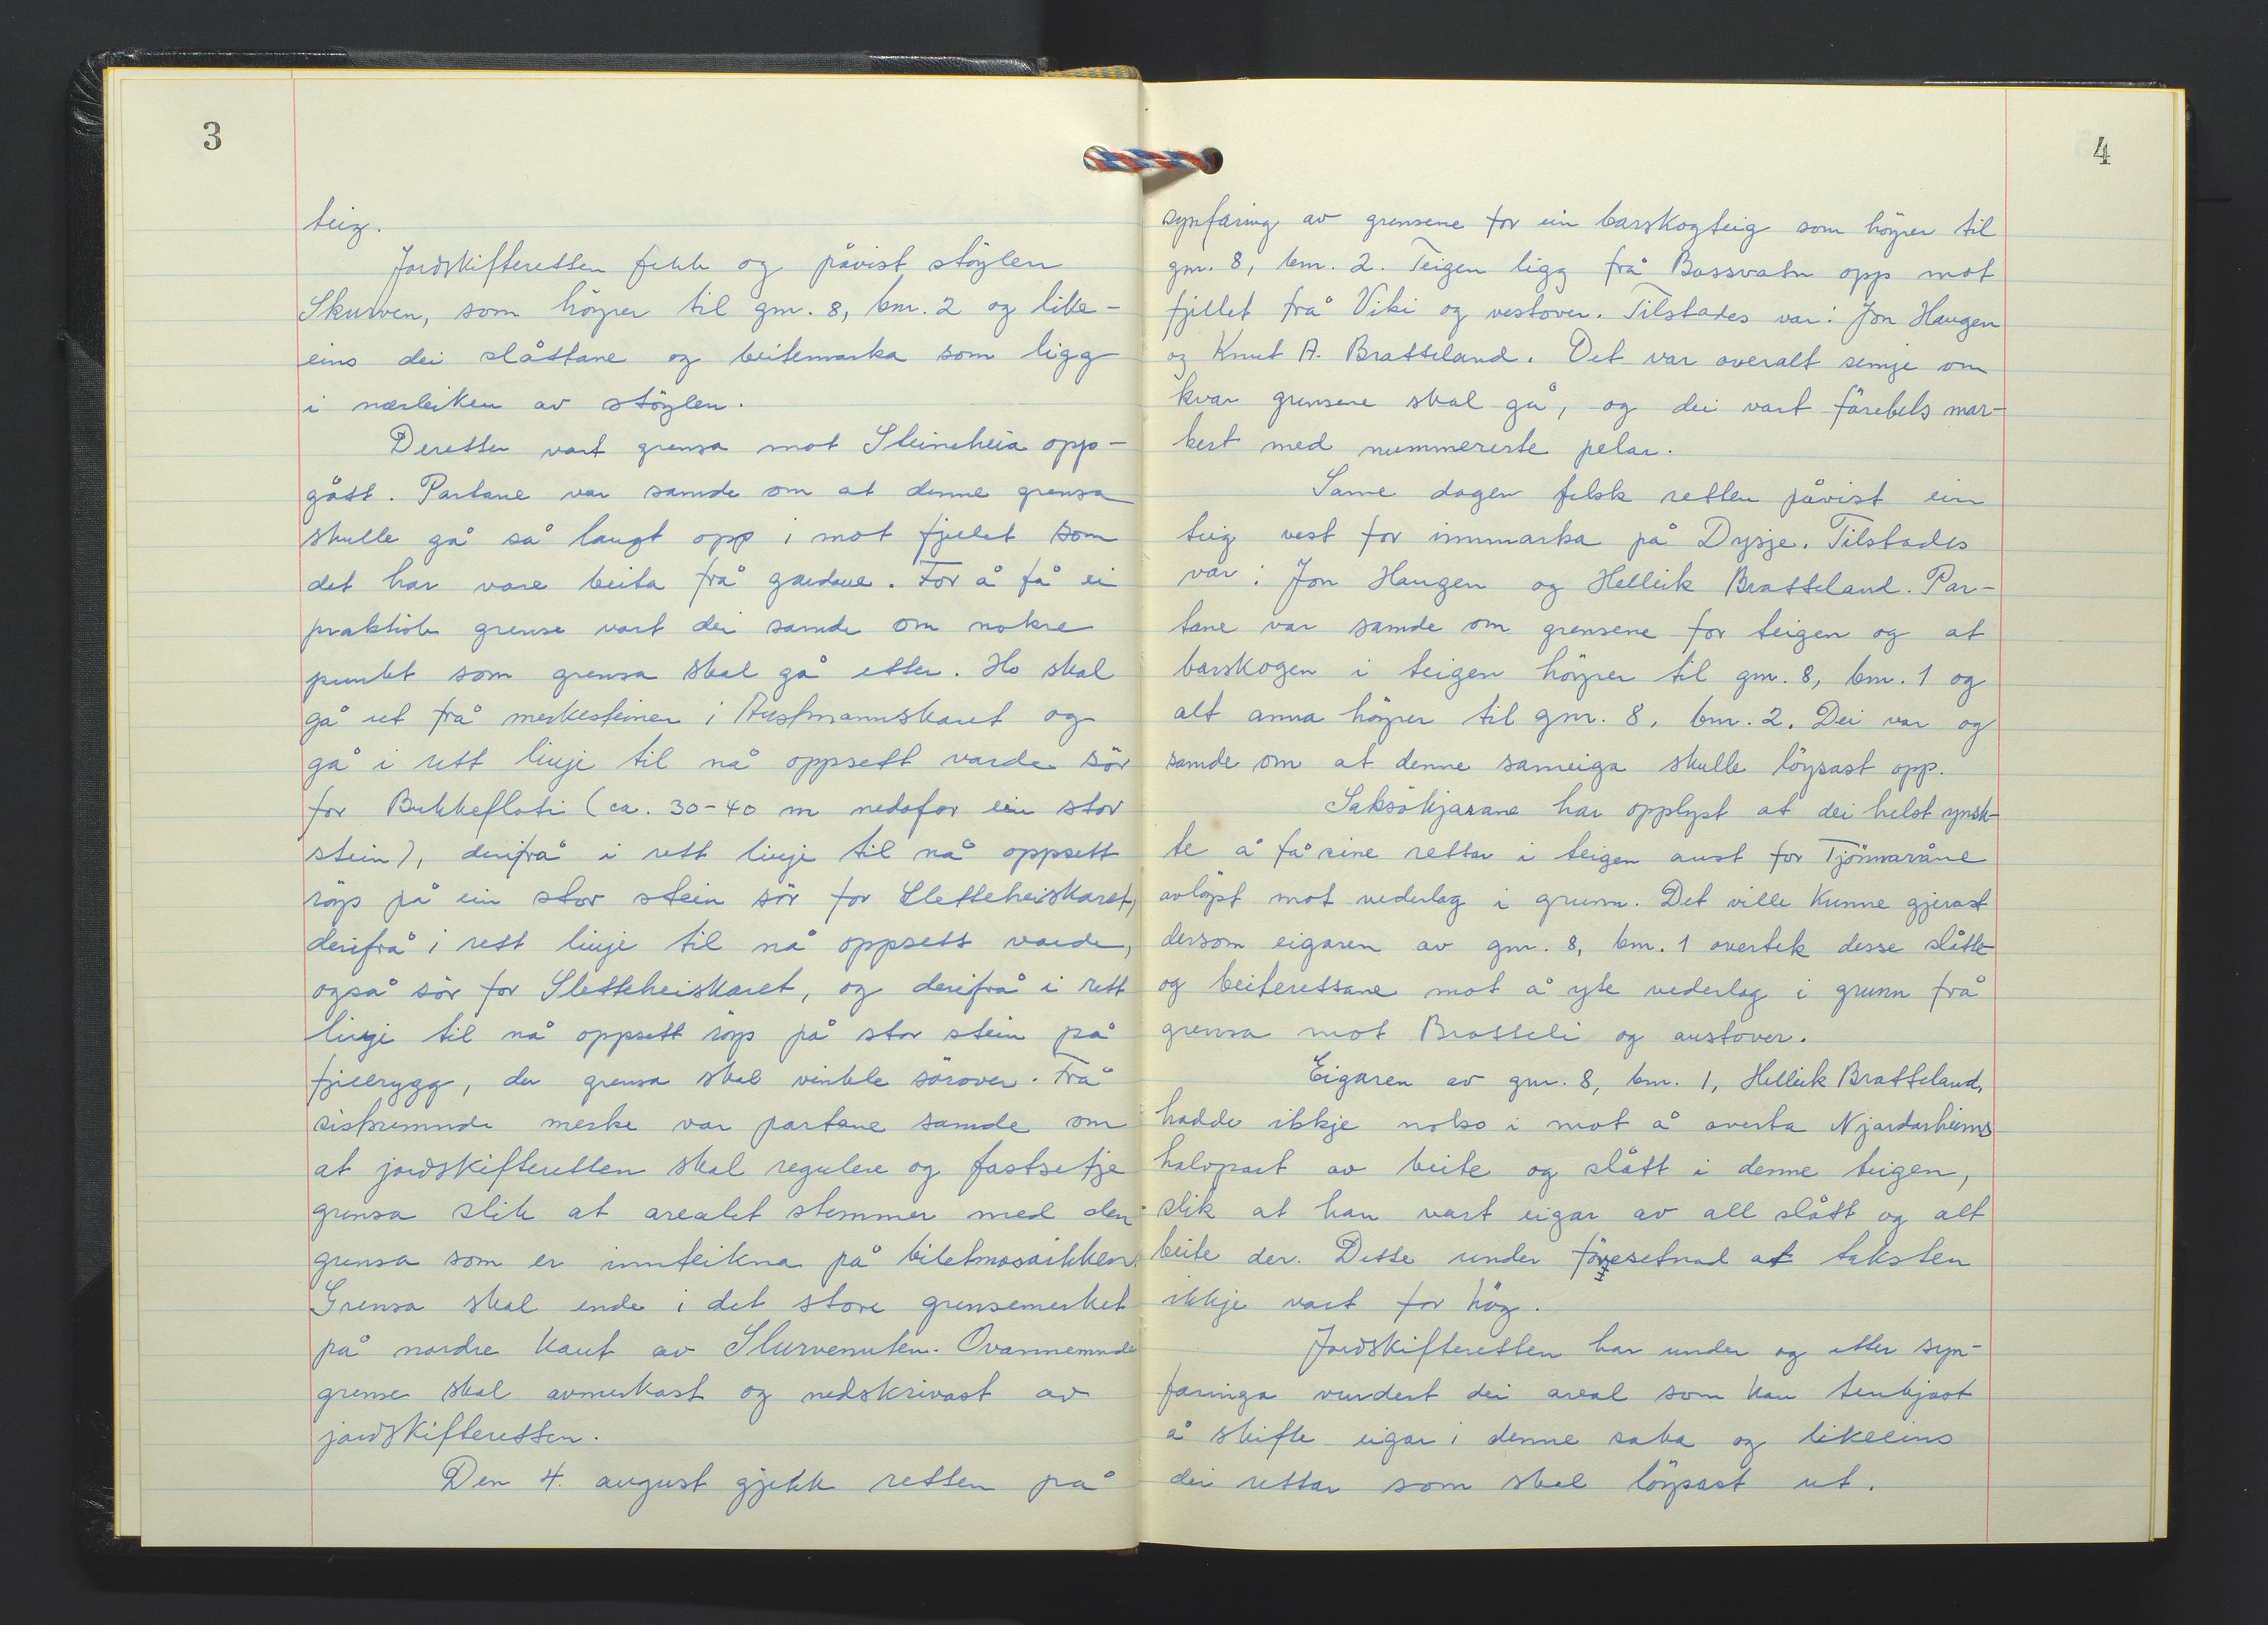 3
teig.
Jordskifteretten fekk og påvist stöylen
Skurven, som höyrer til gnr. 8, bnr. 2 og like-
eins dei slåttane og beitemarka som ligg
i nærleiken av stöylen.
Deretter vart grensa mot Steineheia opp-
gått. Partane var samde om at denne grensa
skulle gå så langt opp i mot fjellet som
det har vore beita frå gardane. For å få ei
praktisk grense vart dei samde om nokre
punkt som grensa skal gå etter. Ho skal
gå ut frå merkesteinen i Austmannskaret og
gå i rett linje til nå oppsett varde sör
for Bukkefloti (ca. 30-40 m nedafor ein stor
stein), derifrå i rett linje til nå oppsett
röys på ein stor stein sör for Sletteheiskaret,
derifrå i rett linje til nå oppsett varde,
også sör for Sletteheiskaret, og derifrå i rett
linje til nå oppsett röys på stor stein på
fjellrygg, der grensa skal vinkle sörover. Frå
sistnemnde merke var partane samde om
at jordskifteretten skal regulere og fastsetje
grensa slik at arealet stemmer med den
grensa som er innteikna på biletmosaikken.
Grensa skal ende i det store grensemerket
på nordre kant av Slurvenuten. Ovannemnde
grense skal avmerkast og nedskrivast av
jordskifteretten.
Den 4. august gjekk retten på
4
synfaring av grensene for ein barskogteig som höyrer til
gnr. 8, bnr. 2. Teigen ligg frå Bossvatn opp mot
fjellet frå Viki og vestover. Tilstades var: Jon Haugen
og Knut A. Bratteland. Det var overalt semje om
kvar grensene skal gå, og dei vart förebels mar-
kert med nummererte pelar.
Same dagen fekk retten påvist ein
teig vest for innmarka på Dysje. Tilstades
var: Jon Haugen og Helleik Bratteland. Par-
tane var samde om grensene for teigen og at
barskogen i teigen höyrer til gnr. 8, bnr. 1 og
alt anna höyrer til gnr. 8, bnr. 2. Dei var og
samde om at denne sameiga skulle löysast opp.
Saksökjarane har opplyst at dei helst ynsk-
te å få sine rettar i teigen aust for Tjönnaråne
avlöyst mot vederlag i grunn. Det ville kunne gjerast
dersom eigaren av gnr. 8, bnr. 1 overtek desse slåtte-
og beiterettane mot å yte vederlag i grunn frå
grensa mot Brotteli og austover.
Eigaren av gnr. 8, bnr. 1, Helleik Bratteland,
hadde ikkje noko i mot å overta Njardarheims
halvpart av beite og slått i denne teigen,
slik at han vart eigar av all slått og alt
beite der. Dette under föresetnad at taksten
ikkje vart for hög.
Jordskifteretten har under og etter syn-
faringa vurdert dei areal som kan tenkjast
å skifte eigar i denne saka og likeeins
dei rettar som skal löysast ut.